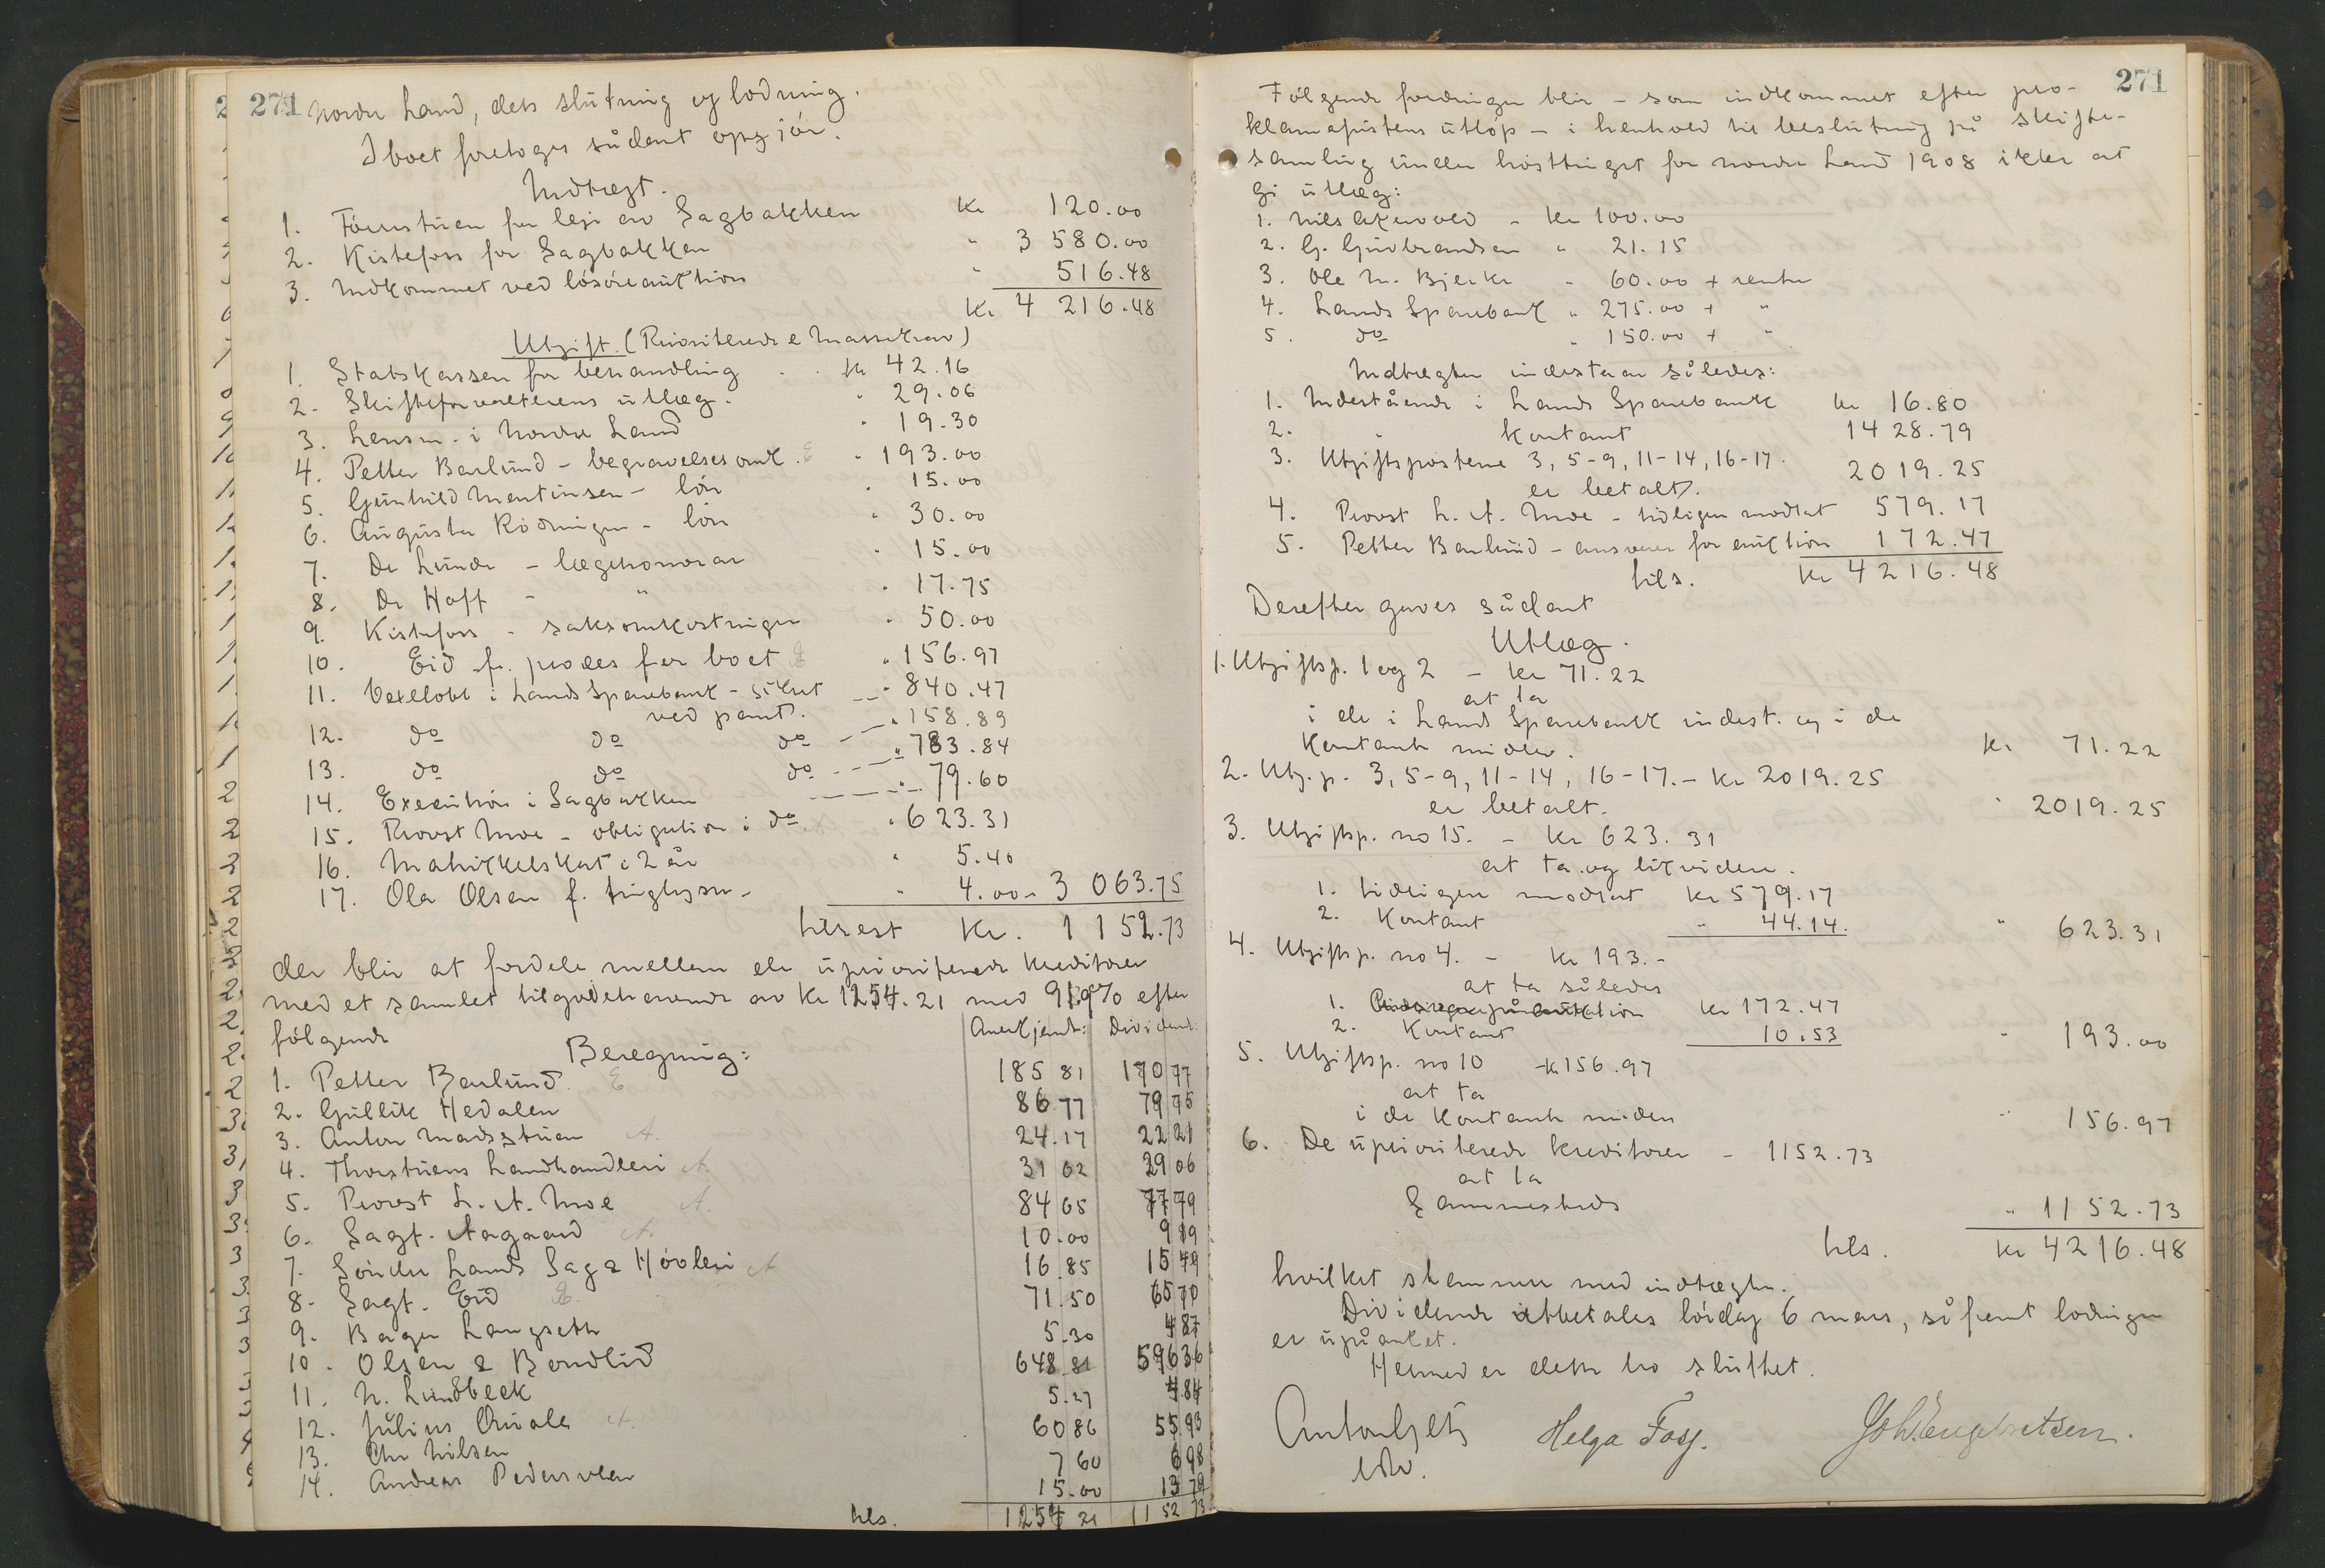 271
Nordre Land, dets slutning og lodning.
I boet foretoges sådant opgjør.
Indtægt.
1. Førrstuen for leje av Sagbakken Kr 120.00
2. Kistefoss for Sagbakken " 3 580.00
3. Indkommet ved løsøreauktion " 516.48
Kr 4 216.48
Utgift. (Prioriterede & Massekrav)
1. Statskassen for behandling . . kr 42.16
2. Skifteforvalterens utlæg. " 29.06
3. Lensm. i Nordre Land " 19.30
4. Petter Barlund - begravelsesomk. E " 193.00
5. Gunhild Martinsen - løn " 15.00
6. Augusta Rødningen - løn " 30.00
7. Dr Lunde - lægehonorar " 15.00
8. Dr Hoff - " " 17.75
9. Kistefoss - saksomkostninger " 50.00
10. Eid fr. proces for boet E " 156.97
11. Vexelobl i Lands Sparebank - sikret " 840.47
ved pant.
12. do do do " 158.89
13. do do do " 783.84
14. Execution i Sagbakken " 79.60
15. Provst Moe - obligation i do " 623.31
16. Matrikkelskat i 2 år " 5.40
17. Ola Olsen f. tinglysn. " 4.00 - 3 063.75
tilrest Kr. 1 152.73
der blir at fordele mellem de uprioriterede kreditorer
med et samlet tilgodehavende av kr 1254.21 med 91.9% efter
følgende Anerkjendt: Dividende:
Beregning:
1. Petter Barlund. E 185 81 170 77
2. Gullik Hedalen 86 77 79 75
3. Anton Madsstuen A. 24.17 22 21
4. Thorstuens Landhandleri A. 31 62 29 06
5. Provst L. A. Moe A. 84 65 77 79
6. Sagf. Aagaard A. 10.00 9 19
7. Søndre Lands Sag & Høvleri A 16.85 15 49
8. Sagf. Eid E. 71.50 65 70
9. Bager Langseth 5.30 4 87
10. Olsen & Bondlid 648.81 596 36
11. N. Lundbeck 5.27 4 84
12. Julius Qvale A. 60 86 55 93
13. Chr Nilsen 7 60 6 98
14. Andreas Pedersveen 15.00 13 79
tils. 1254 21 1152 73
271
Følgende fordringer blir - som indkommet efter pro-
klamafristens utløp - i henhold til beslutning på skifte-
samling under høsttinget for nordre Land 1908 ikke at
gi utlæg:
1. Nils Akervold - kr 100.00
2. G. Gudbrandsen " 21.15
3. Ole N. Bjerke " 60.00 + renter
4. Lands Sparebank " 275.00 + "
5. do " 150.00 + "
Indtægten indestaar således:
1. Indestående i Lands Sparebank kr 16.80
2. " Kontant 1428.79
3. Utgiftsposterne 3, 5-9, 11-14, 16-17. 2019.25
er betalt.
4. Provst L. A. Moe - tidligere mottat 579.17
5. Petter Barlund - ansvarer for auktion 172.47
tils. kr 4216.48
Derefter gaves sådant
Utlæg.
1. Utgiftsp. 1 og 2 - kr 71.22
at ta
i de i Lands Sparebank indest. og i de
kontante midler. kr 71.22
2. Utg.p. 3, 5-9, 11-14, 16-17. - kr 2019.25
er betalt. " 2019.25
3. Utgiftsp. no 15. - kr 623.31
at ta og likvidere.
1. tidligere mottat kr 579.17
2. Kontant " 44.14. " 623.31
4. Utgiftsp. no 4. - kr 193.-
at ta således
1. på auktion kr 172.47
2. Kontant 10.53 " 193.00
5. Utgiftsp. no 10 - kr 156.97
at ta
i de kontante midler " 156.97
6. De uprioriterede kreditorer - 1152.73
at ta
sammesteds " 1152.73
tils. kr 4216.48
hvilket stemmer med indtægten.
Dividende utbetales lørdag 6 mars, såfremt lodningen
er upåanket.
Hermed er dette bo sluttet.
Helga Fosj. Joh. Engebretsen.